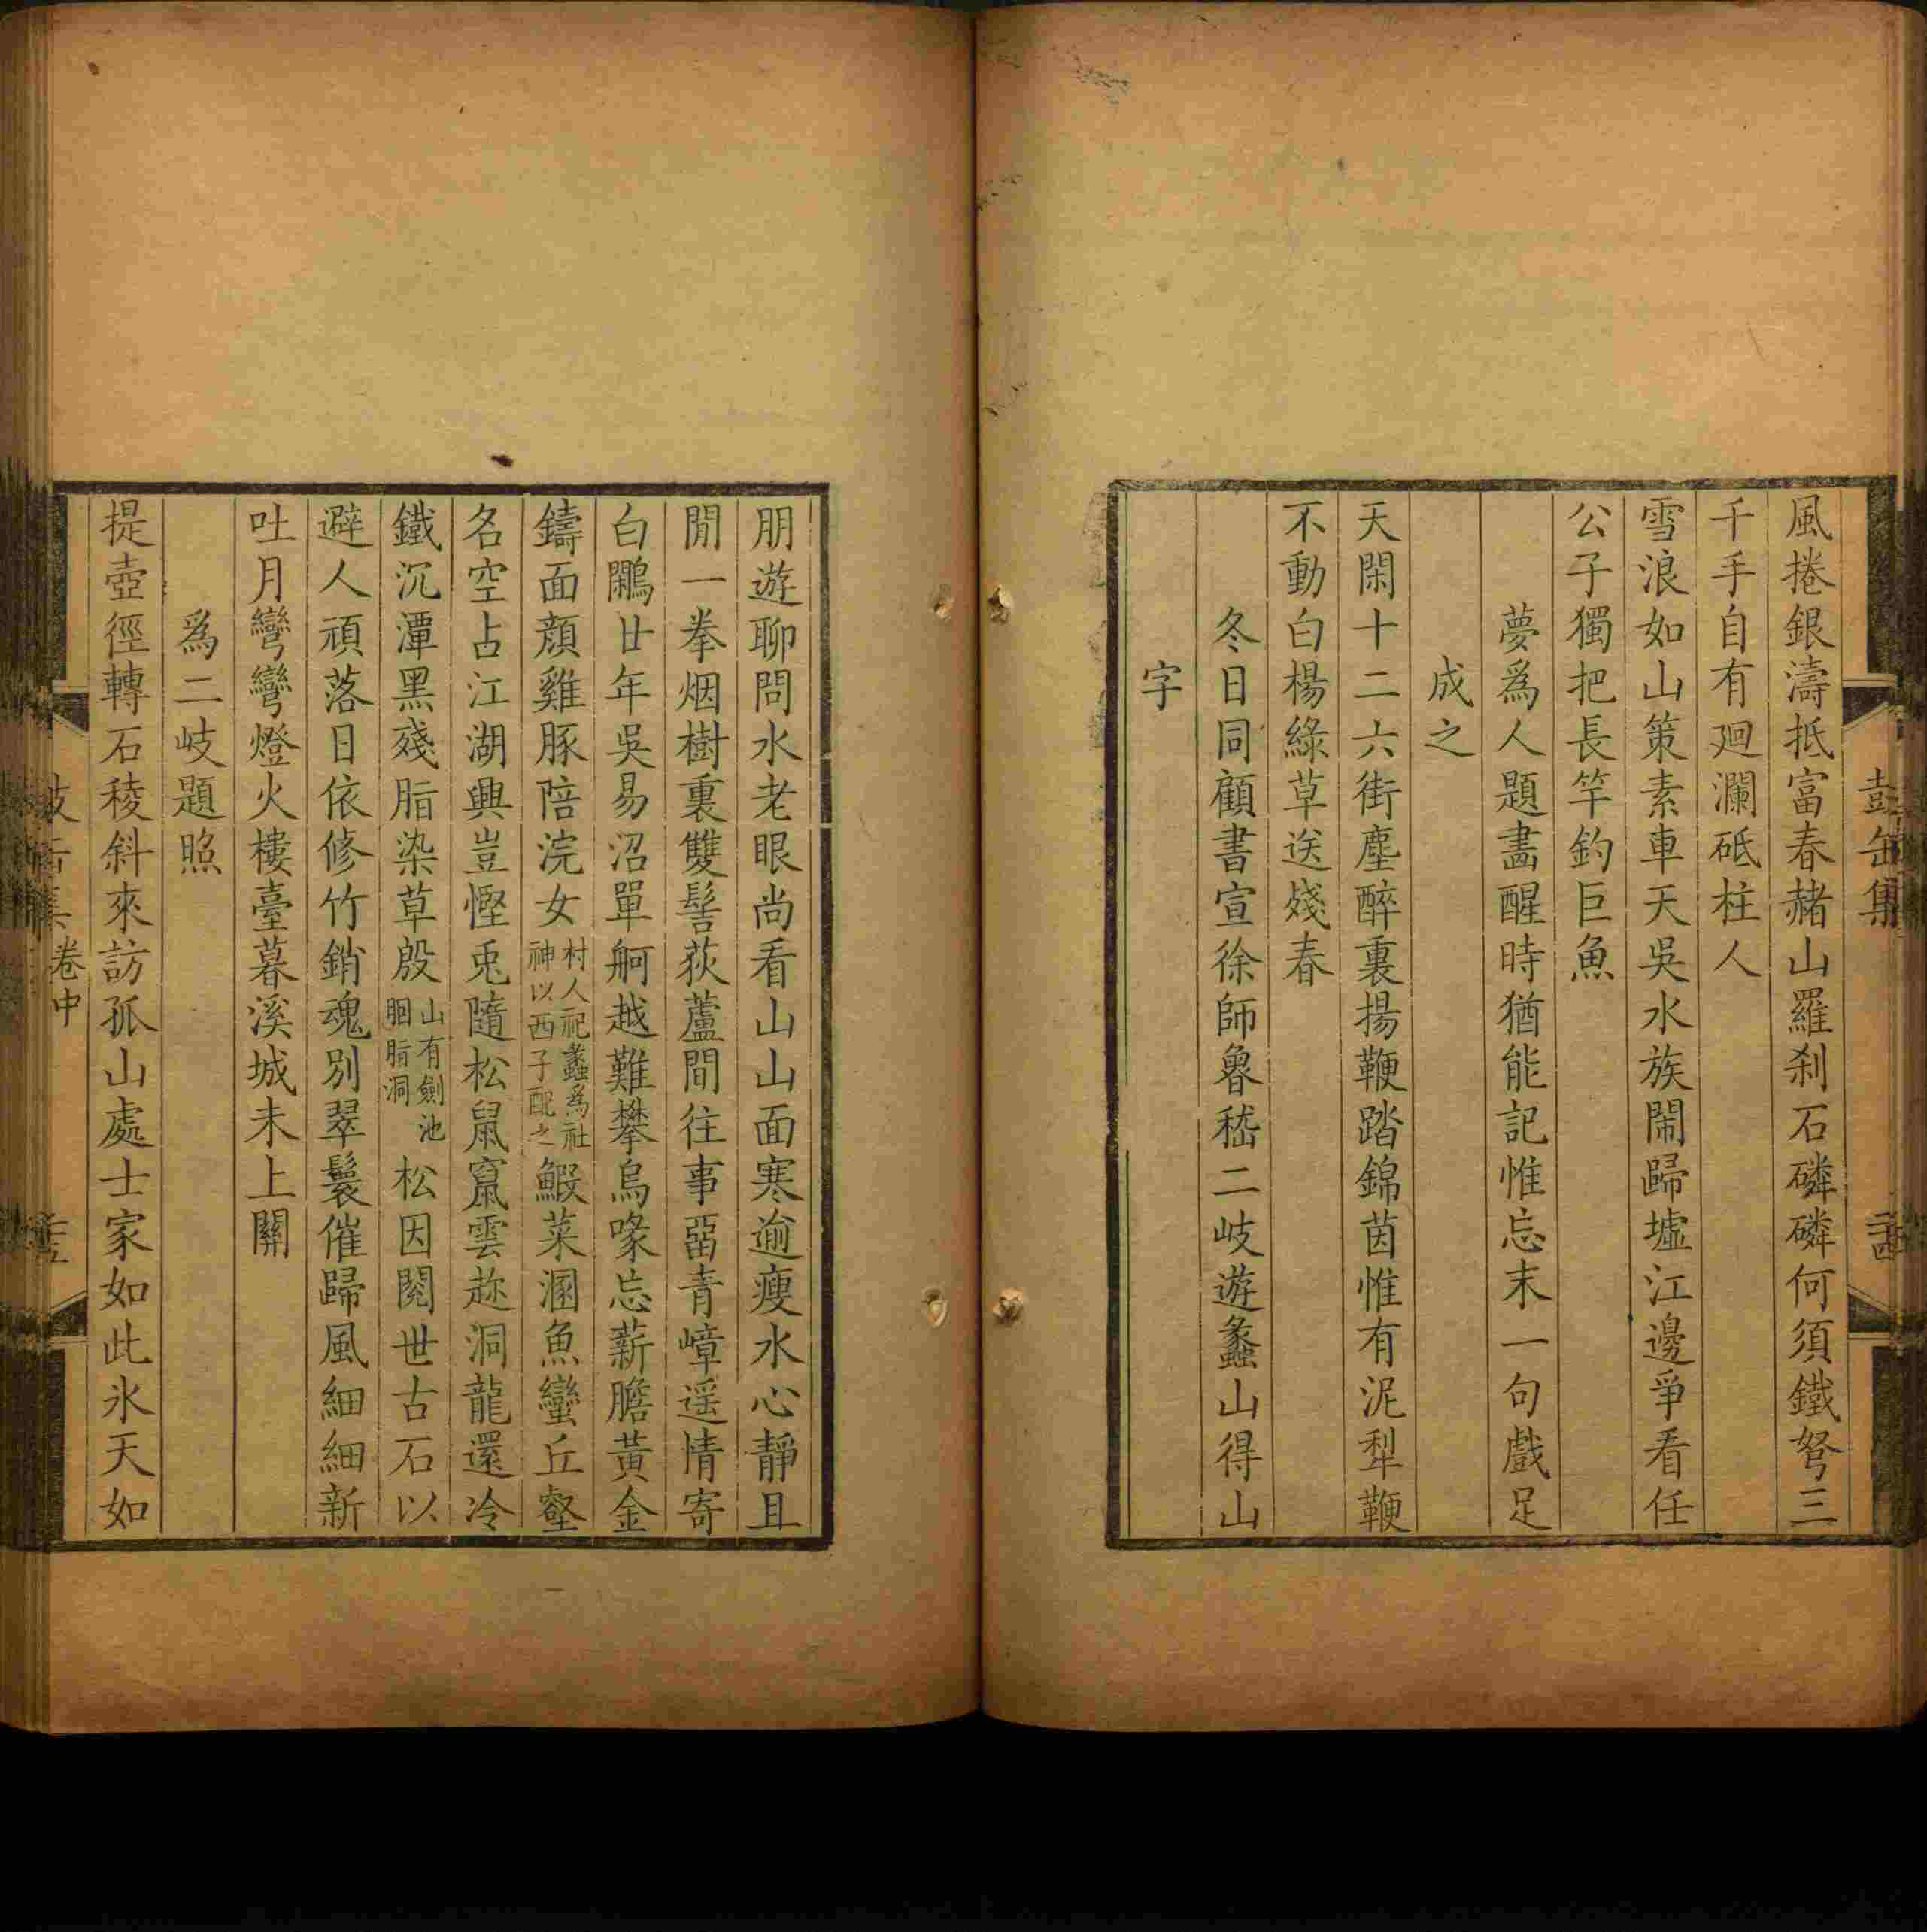 風捲銀濤抵富春赭山羅刹石磷磷何須鐵弩三
千手自有廻瀾砥柱人
雪浪如山策素車天吳水族鬧歸墟江邊爭看任
公子獨把長竿釣巨魚
夢爲人題畵醒時猶能記惟忘末一句戲足
成之
天閑十二六街塵醉裏揚鞭踏錦茵惟有泥犁鞭
不動白楊綠草送殘春
冬日同顧書宣徐師魯嵇二岐遊蠡山得山
字
朋遊聊問水老眼尚看山山面寒逾瘦水心靜且
閒一拳烟樹裏雙髻荻蘆間往事畱青嶂遥情寄
白鷴廿年吳易沼單舸越難攀烏喙忘薪膽黃金
鑄面顔雞豚陪浣女村人祀蠡爲社神以西子配之鰕菜溷魚蠻丘壑
名空占江湖興豈慳兎隨松鼠竄雲趂洞龍還冷
鐵沉潭黑殘脂染草殷山有劍池胭脂洞松因閱世古石以
避人頑落日依修竹銷魂別翠鬟催歸風細細新
吐月彎彎燈火樓臺暮溪城未上關
爲二岐題照
提壺徑轉石稜斜來訪孤山處士家如此氷天如
彭缶集
卷中